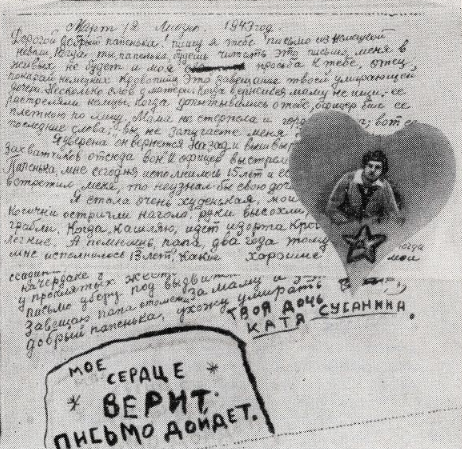 Март 12 Лиозно. 1943 год
Дорогой добрый папенька! пишу я тебе письмо из немецкой
неволи. Когда ты, папенька, будешь читать это письмо меня в
живых не будет. моя просьба к тебе, отец,
покарай немецких кровопийц Это завещание твоей умирающей
дочери. Несколько слов о матери. Когда вернешься маму не ищи, ее
расстреляли немцы. Когда допытывались о тебе, офицер бил ее
плеткою по лицу. Мама не стерпела и гордо вот ее
последние слова, "вы не запугаете меня
Я уверена он вернется назад и вышвыр
захватчиков отсюда вон. И офицер выстрел
Папенька, мне сегодня исполнилось 15 лет и ес
встретил меня, то не узнал бы свою доч
Я стала очень худенькая, мои
Косички остригли наголо, руки высохли,
грабли. Когда кашляю, идет изо рта кров
легкие. А помнишь, папа, два года тому когда
мне исполнилось 13 лет, какие хорошие мои
чердаке
у проклятых
письмо уберу под
Завещаю папа за маму и
добрый папенька, ухожу умирать
ТВОЯ ДОЧЬ
КАТЯ СУСАНИНА.
МОЕ
СЕРДЦЕ
ВЕРИТ.
ПИСЬМО ДОЙДЕТ.